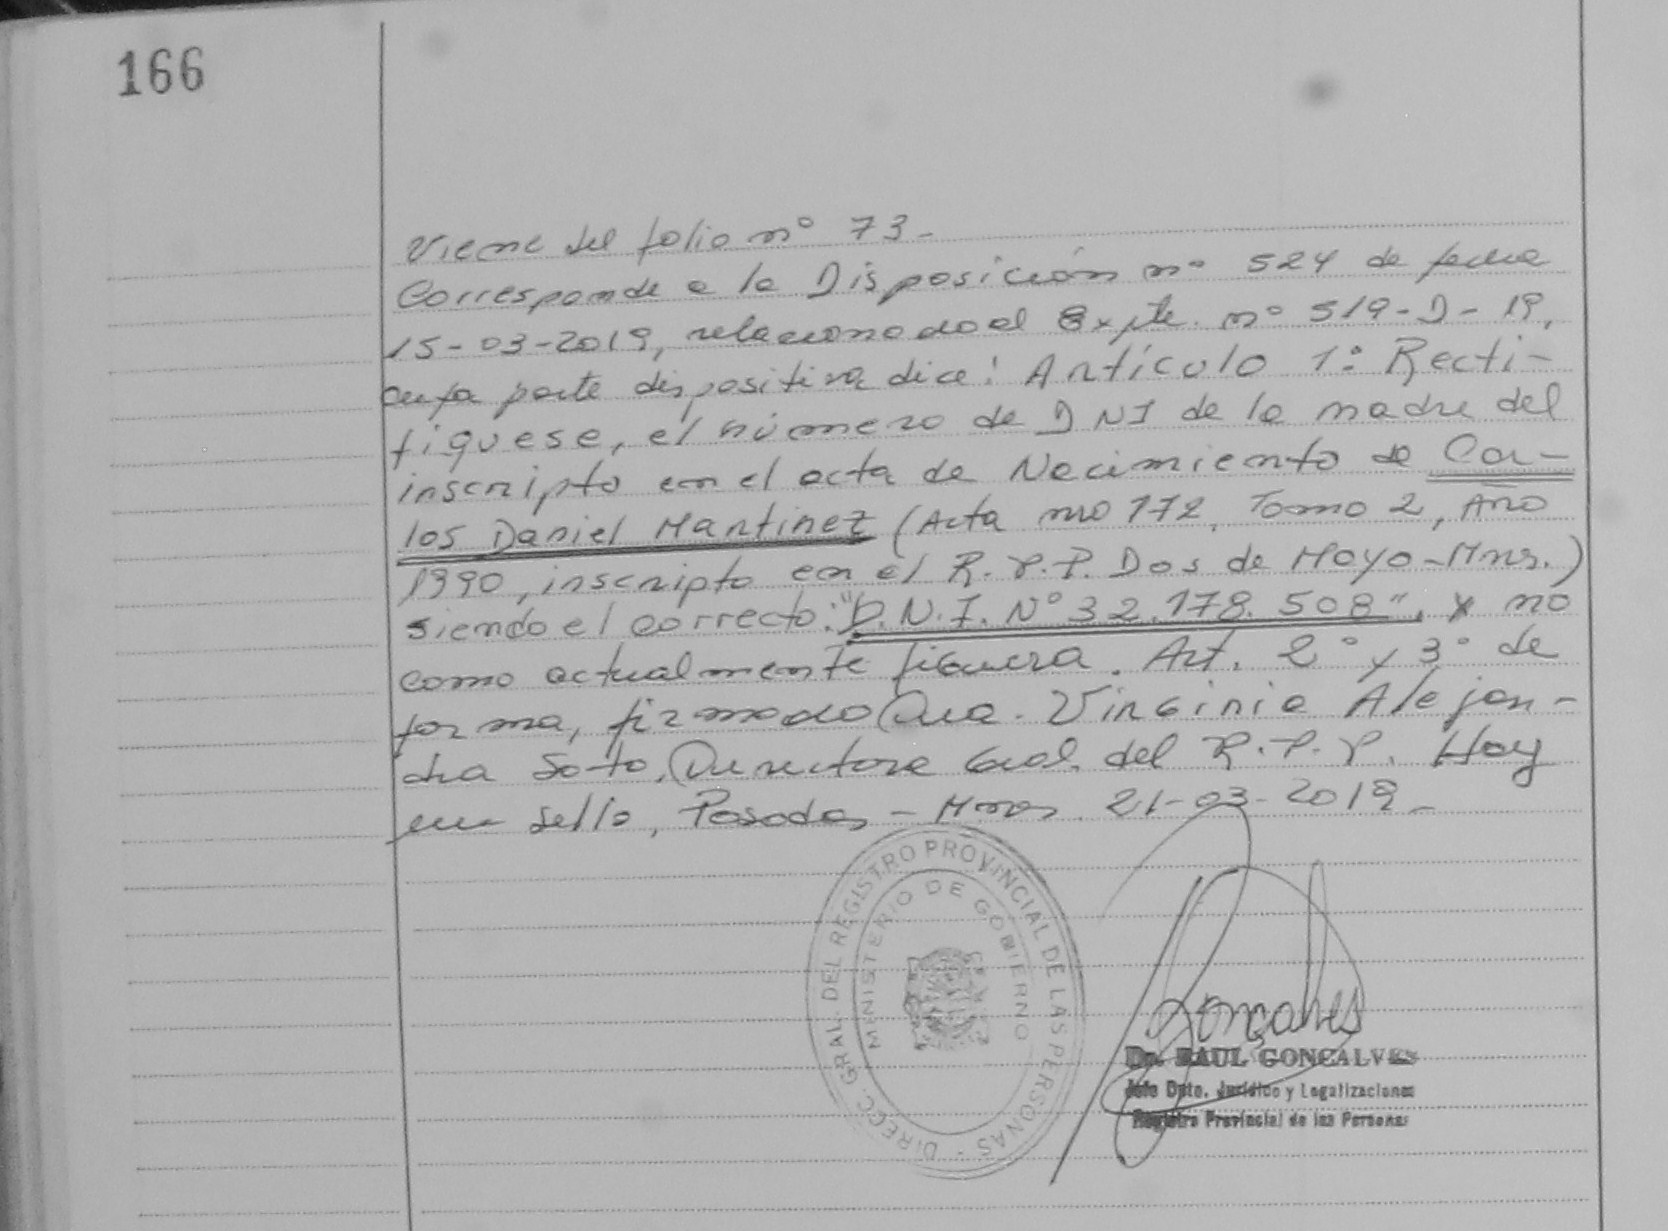 166
Viene del folio nº 73-
Corresponde a la Disposición nº 524 de fecha
15-03-2019, relacionado al Expte. nº 519-D-19,
cuya parte dispositiva dice: Artículo 1º: Recti-
fíquese, el número de DNI de la madre del
inscripto en el acta de Nacimiento de Car-
los Daniel Martinez (Acta nro 172, Tomo 2, Año
1990, inscripto en el R.P.P. Dos de Mayo-Mns.)
siendo el correcto: "D.N.I. Nº 32.178.508", y no
como actualmente figura. Art. 2º y 3º de
forma, firmado Dra. Virginia Alejan-
dra Soto, Directora Gral. del R.P.P. Hay
un sello, Posadas - Mnes. 21-03-2019-
DIRECC. GRAL. DEL REGISTRO PROVINCIAL DE LAS PERSONAS -
MINISTERIO DE GOBIERNO
Gonçalves
Dr. RAUL GONÇALVES
Jefe Dpto. Jurídico y Legalizaciones
Registro Provincial de las Personas